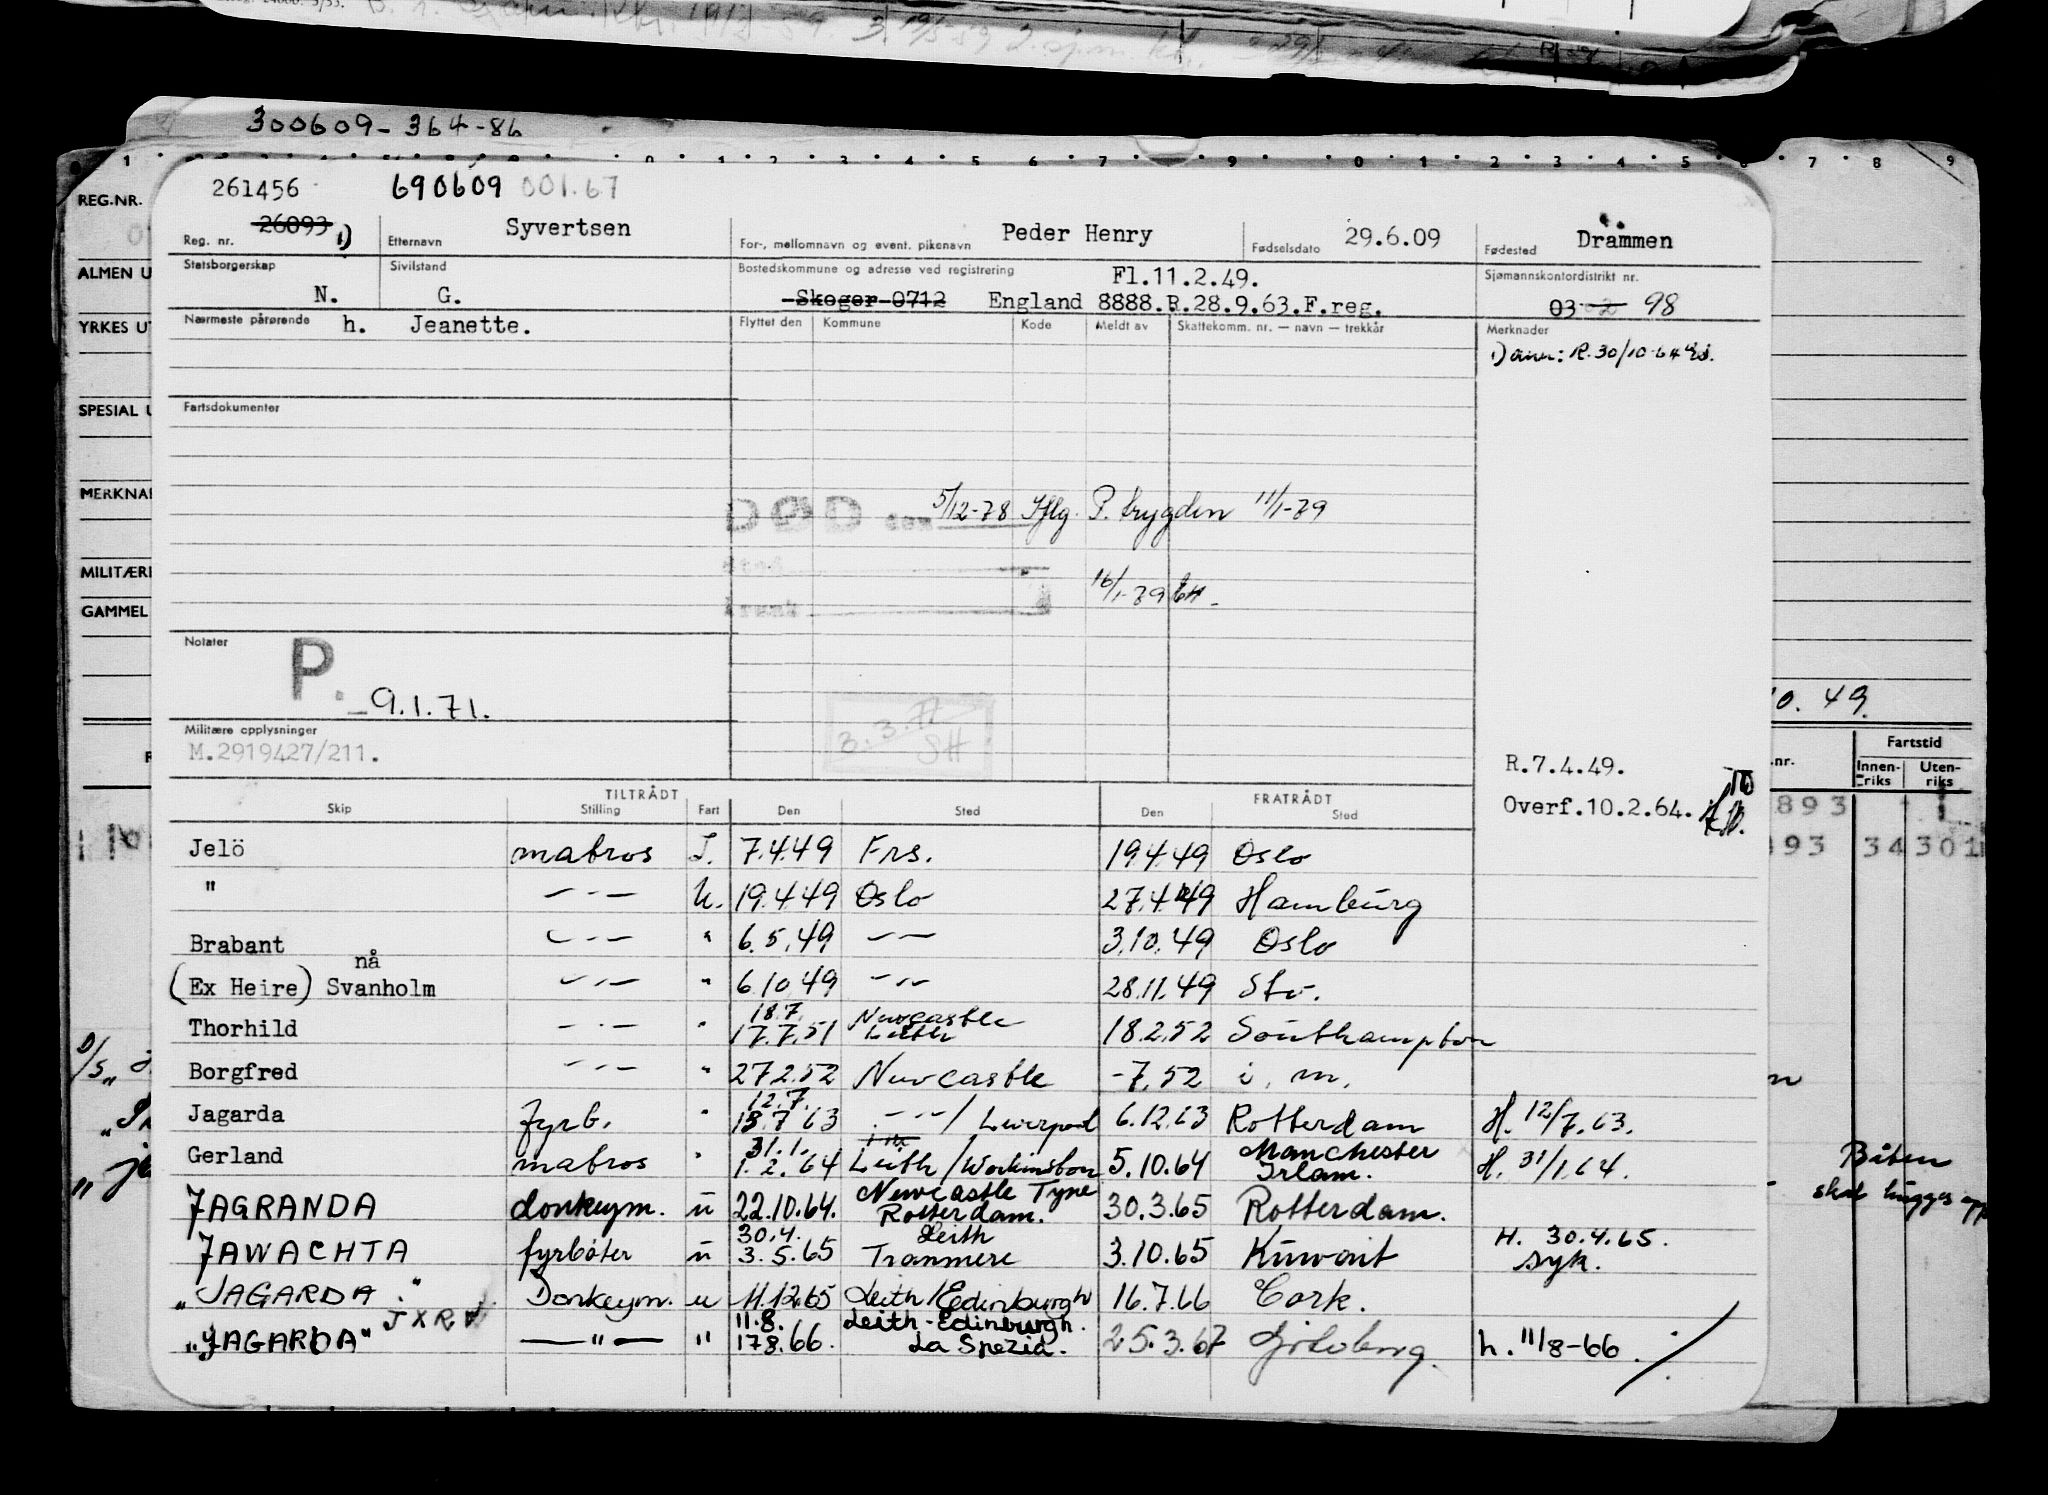 300609-364-86
REG.NR.
ALMEN U
YRKES UT
SPESIAL U
MERKNA
MILITÆR
GAMMEL
261456 690609 001.67
Reg. nr. 26093 1) Etternavn Syvertsen For-, mellomnavn og event. pikenavn Peder Henry Fødselsdato 29.6.09 Fødested Drammen
Statsborgerskap N. Sivilstand G. Bostedskommune og adresse ved registrering Fl.11.2.49. Sjømannskontordistrikt nr.
Skoger 0712 England 8888.R.28.9.63.F.reg. 03 98
Nærmeste pårørende h. Jeanette. Flyttet den Kommune Kode Meldt av Skattekomm. nr. — navn — trekkår Merknader
1) R. 30/10-64
Fartsdokumenter
DØD den 5/12-78 P. trygden 11/1-79
Sted
16/1-79
Notater P. 9.1.71.
3.3.71 SH
10. 49.
Militære opplysninger
M.2919427/211.
Fartstid
.nr. Innen-riks Uten-riks
R.7.4.49.
Overf.10.2.64.
893 1
893 34 301
TILTRÅDT FRATRÅDT
Skip Stilling Fart Den Sted Den Sted
Jelö matros I. 7.4.49 Frs. 19.4.49 Oslo
" — " — U. 19.4.49 Oslo 27.4.49 Hamburg
Brabant — " — " 6.5.49 — " — 3.10.49 Oslo
nå
(Ex Heire) Svanholm — " — " 6.10.49 — " — 28.11.49 Stv.
18.7. Newcastle
Thorhild — " — " 17.7.51 Leith 18.2.52 Southampton
Borgfred — " — " 27.2.52 Newcastle -7.52 i. m.
12.7.
Jagarda fyrb. " 13.7.63 — " — / Liverpool 6.12.63 Rotterdam H. 12/7.63.
31.1. Manchester
Gerland matros " 1.2.64 Leith / Workington 5.10.64 Irlam. H. 31/1.64.
Newcastle Tyne
JAGRANDA donkeym. u 22.10.64. Rotterdam. 30.3.65 Rotterdam.
30.4. Leith H. 30.4.65.
JAWACHTA fyrbøter u 3.5.65 Tranmere 3.10.65 Kuwait syk.
"JAGARDA" Donkeym. u 11.12.65 Leith/Edinburgh 16.7.66 Cork.
JXRV 11.8. Leith-Edinburgh.
"JAGARDA" — " — " 17.8.66. La Spezia. 25.3.67 Göteborg. h. 11/8-66
D/S
Båten
skal hugges opp